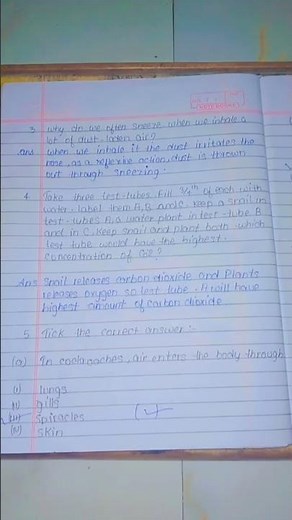 3. Why do we often sneeze when we inhale a
lot of dust-laden air?
Ans when we inhale it the dust irritates the
nose, as a reflexive action, dust is thrown
out through sneezing.
4. Take three test-tubes. Fill 3/4th of each with
water. label them A, B and C. Keep a snail in
test-tubes A, a water plant in test-tube B
and in C, Keep snail and plant both which
test tube would have the highest
concentration of CO2?
Ans= Snail releases carbon dioxide and Plants
releases oxygen so test tube-A will have
highest amount of carbon dioxide.
5 Tick the correct answer:-
(a) In cockroaches, air enters the body through
(i) lungs
(ii) gills
(iii) spiracles (✓)
(iv) skin